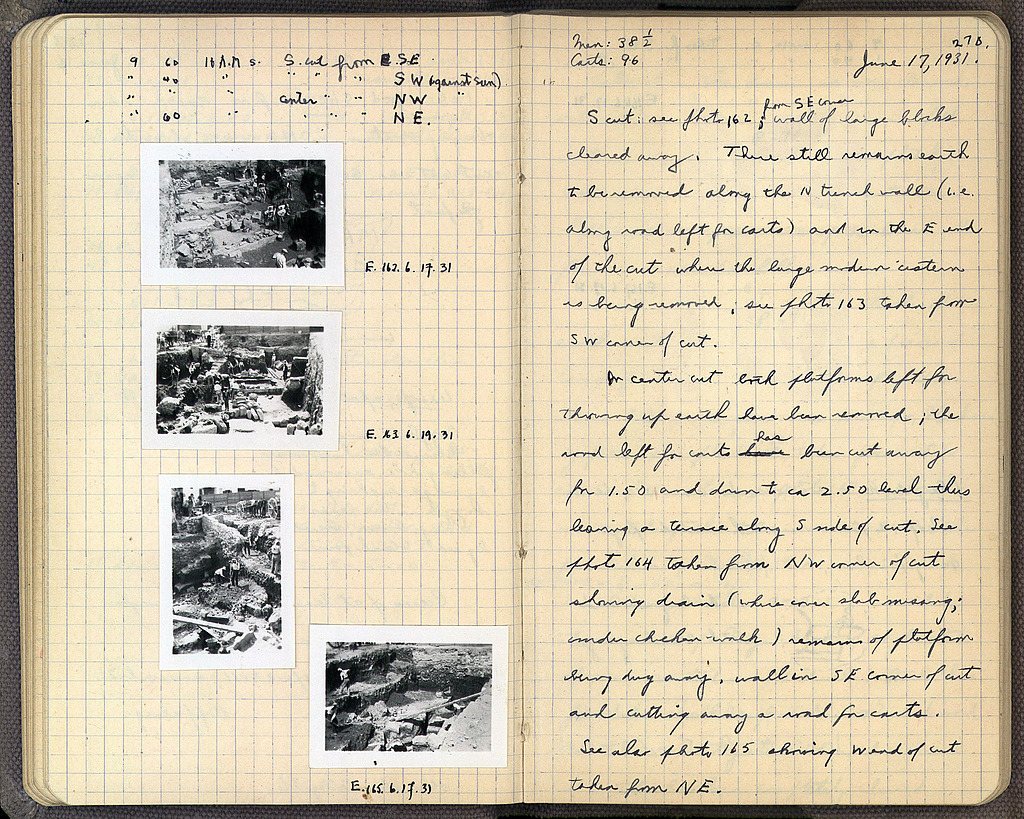 9 60 10 A.M s. S. cut from E.SE
" 40 " " " " SW (against sun)
" " " center " " NW "
" 60 " " " " NE.
E. 162. 6. 17. 31
E. 163. 6. 19. 31
E. 165. 6. 17. 31
Men: 38 1/2
Carts: 96
270.
June 17, 1931.
from SE corner
S cut: see photo 162; wall of large blocks
cleared away. There still remains earth
to be removed along the N trench wall (i.e.
along road left for carts) and in the E end
of the cut where the large modern cistern
is being removed; see photo 163 taken from
SW corner of cut.
In center cut both platforms left for
throwing up earth have been removed; the
has
road left for carts have been cut away
for 1.50 and down to ca 2.50 level thus
leaving a terrace along S side of cut. See
photo 164 taken from NW corner of cut
showing drain (where cover slab missing;
under chicken-walk) remains of platform
being dug away, wall in SE corner of cut
and cutting away a road for carts.
See also photo 165 showing W end of cut
taken from NE.